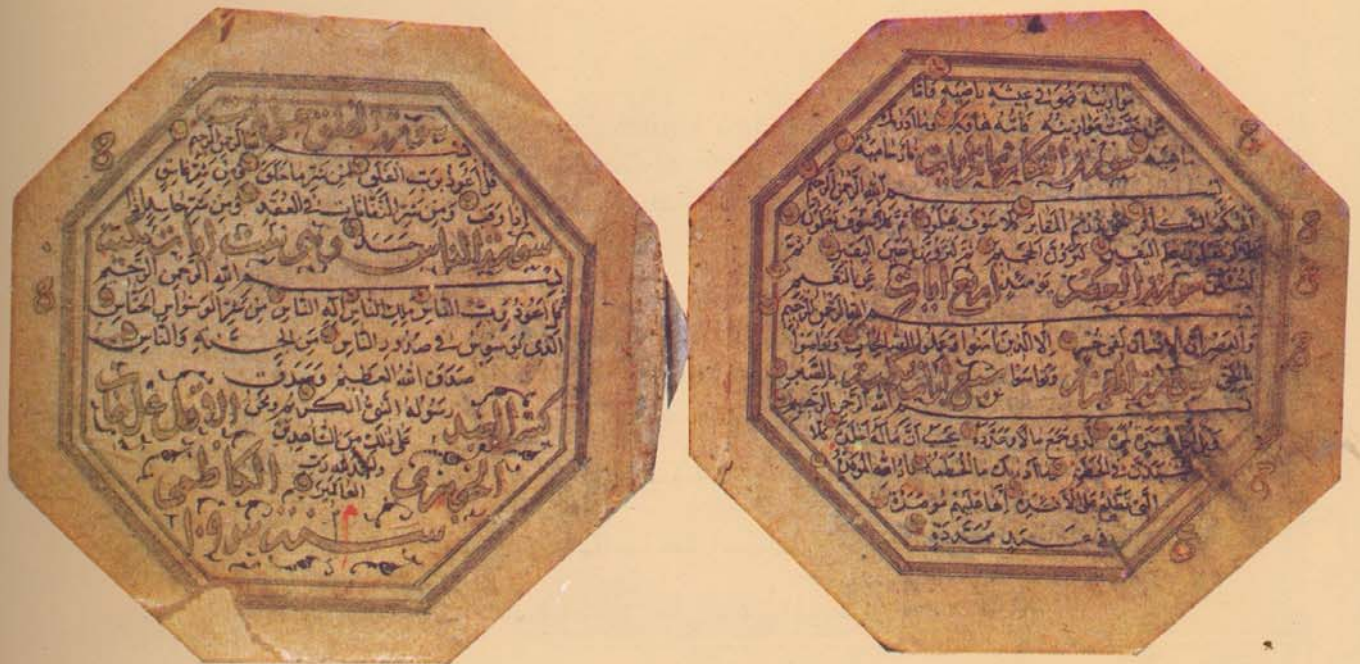 موازينه فهو في عيشة راضية فاما
من خفت موازينه فامه هاوية وما ادريك
ماهيه سورة التكاثر ثمان ايات نار حامية
بسم الله الرحمن الرحيم
الهيكم التكاثر حتى زرتم المقابر كلا سوف تعلمون ثم كلا سوف تعلمون
كلا لو تعلمون علم اليقين لترون الجحيم ثم لترونها عين اليقين ثم
لتسئلن سورة العصر يومئذ اربع ايات عن النعيم
بسم الله الرحمن الرحيم
والعصر ان الانسان لفي خسر الا الذين امنوا وعملوا الصالحات وتواصوا
بالحق سورة الهمزة وتواصوا تسع ايات مكية بالصبر
بسم الله الرحمن الرحيم
ويل لكل همزة لمزة الذي جمع مالا وعدده يحسب ان ماله اخلده كلا
لينبذن في الحطمة وما ادريك ما الحطمة نار الله الموقدة
التي تطلع على الافئدة انها عليهم مؤصدة
في عمد ممددة
سورة الفلق
بسم الله الرحمن الرحيم
قل اعوذ برب الفلق من شر ما خلق ومن شر غاسق
اذا وقب ومن شر النفاثات في العقد ومن شر حاسد اذا
سورة الناس حسد وهي ست ايات مكية
بسم الله الرحمن الرحيم
قل اعوذ برب الناس ملك الناس اله الناس من شر الوسواس الخناس
الذي يوسوس في صدور الناس من الجنة والناس
صدق الله العظيم وصدق
كتبه العبد رسوله النبي الكريم ونحن الاقل
على ذلك من الشاهدين
والحمد لله رب الكاظمي
العالمين
سنة ١٠